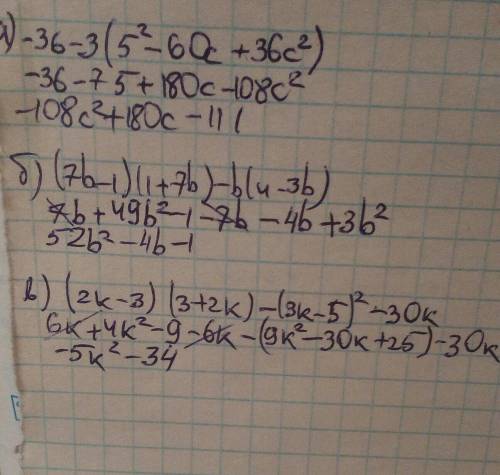 а) -36-3(5²-60с+36с²)
-36-75+180с-108с²
-108с²+180с-111
б) (7b-1)(1+7b)-b(4-3b)
7b+49b²-1-7b-4b+3b²
52b²-4b-1
в) (2к-3)(3+2к)-(3к-5)²-30к
6к+4к²-9-6к-(9к²-30к+25)-30к
-5к²-34